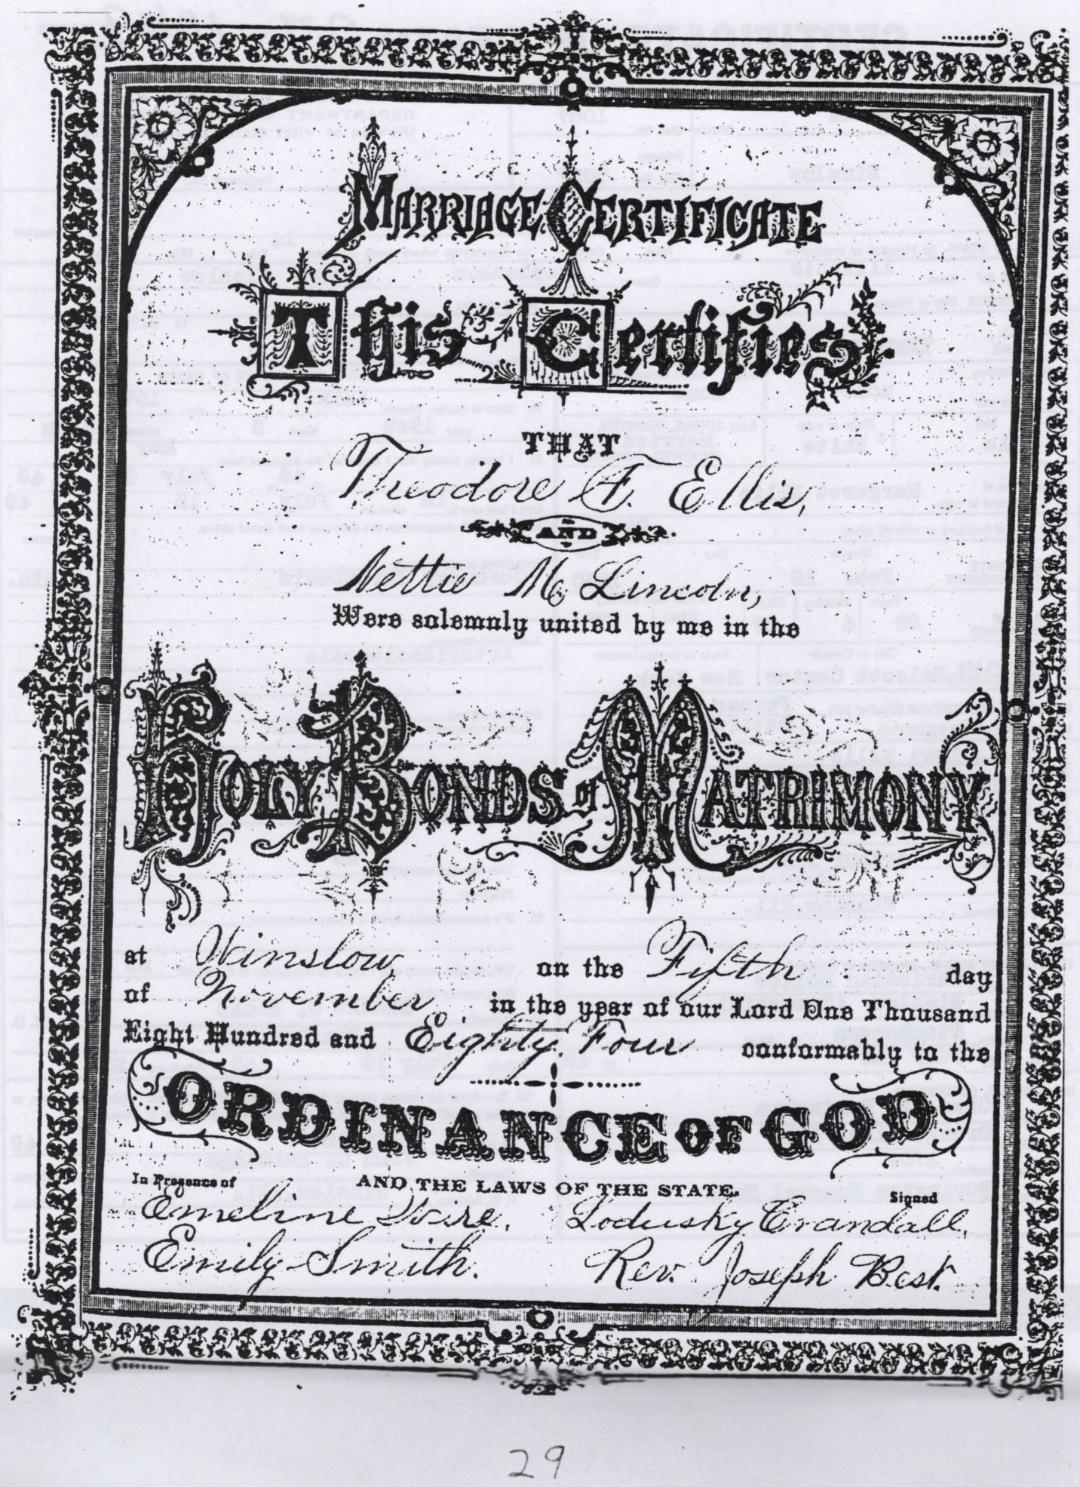 MARRIAGE CERTIFICATE
This Certifies
THAT
Theodore F. Ellis,
AND
Nettie M. Lincoln,
Were solemnly united by me in the
HOLY BONDS of MATRIMONY
at Winslow on the Fifth day
of November in the year of our Lord One Thousand
Eight Hundred and Eighty Four conformably to the
ORDINANCE OF GOD
AND THE LAWS OF THE STATE.
In Presence of Signed
Emeline Wire. Lodusky Crandall.
Emily Smith. Rev. Joseph Best.
29